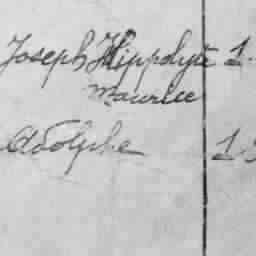 Joseph Hippolyte 1
Maurice
Adolphe 1